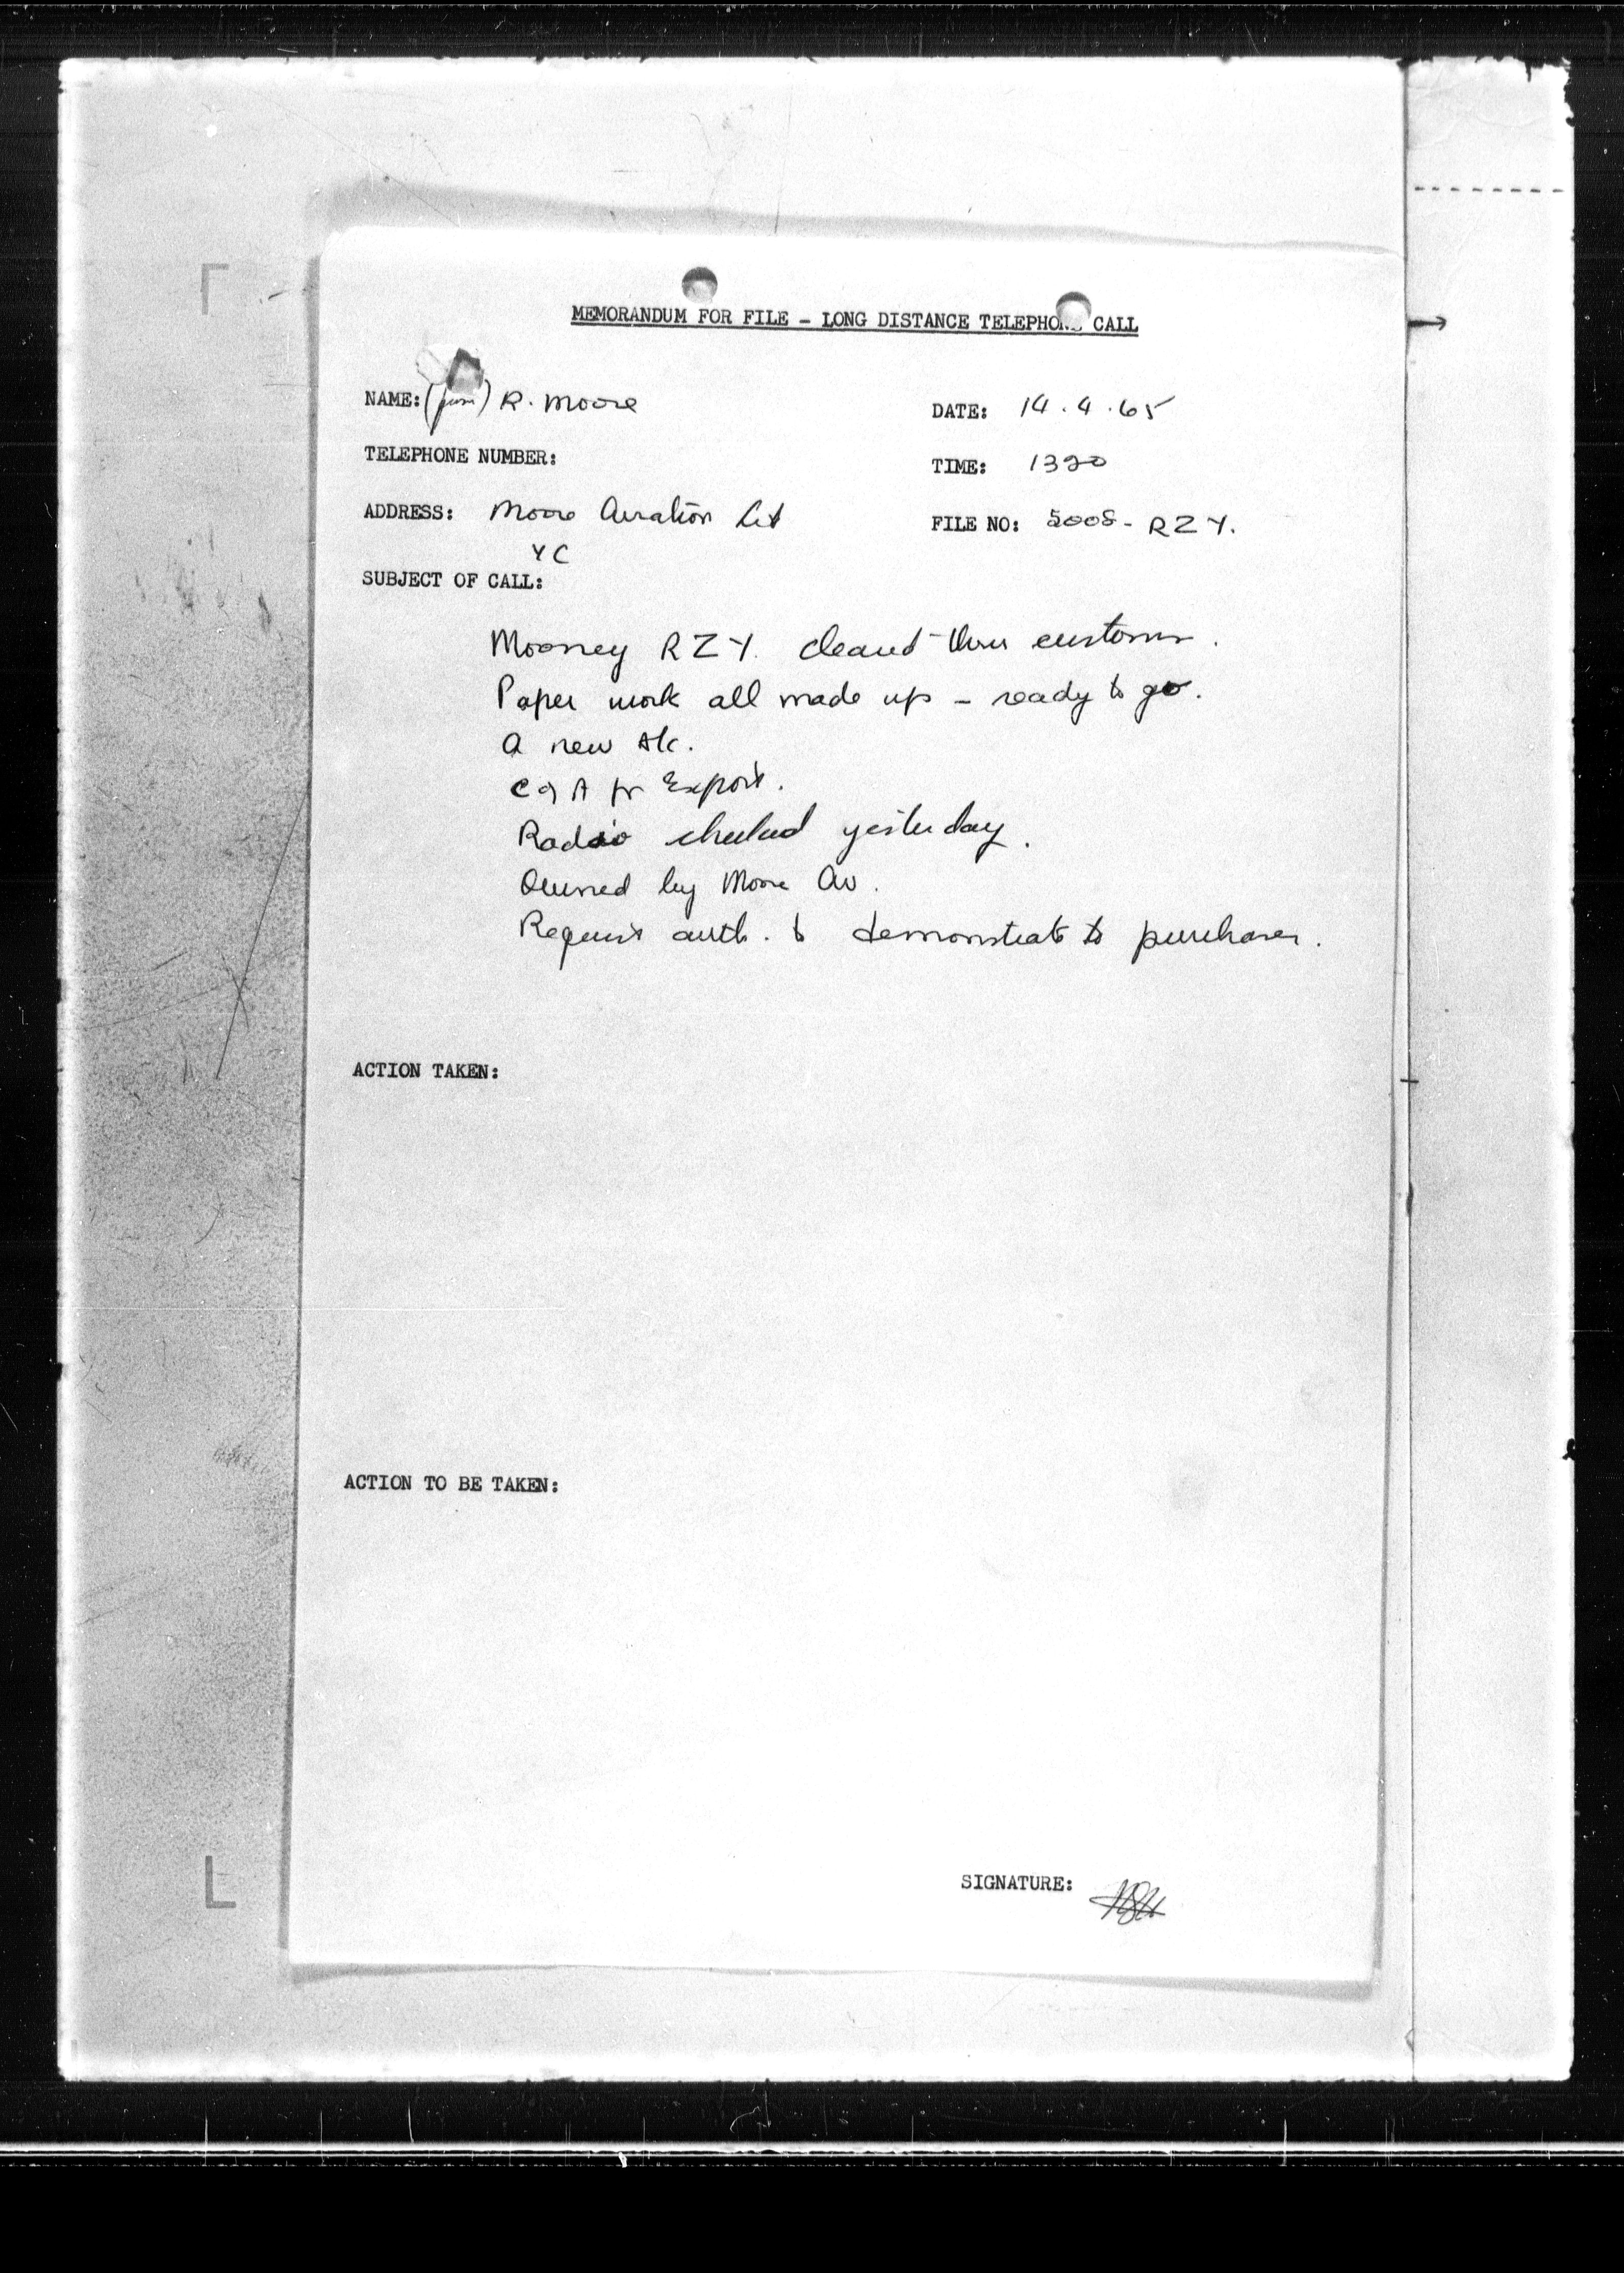 MEMORANDUM FOR FILE - LONG DISTANCE TELEPHONE CALL
NAME: (from) R. Moore
DATE: 14.4.65
TELEPHONE NUMBER:
TIME: 1320
ADDRESS: Moore Aviation Ltd
YC
FILE NO: 5008-RZY.
SUBJECT OF CALL:
Mooney RZY. cleared thru customs.
Paper work all made up - ready to go.
A new A/c.
C of A for Export.
Radio checked yesterday.
Owned by Moore Av.
Request auth. to demonstrate to purchaser.
ACTION TAKEN:
ACTION TO BE TAKEN:
SIGNATURE: